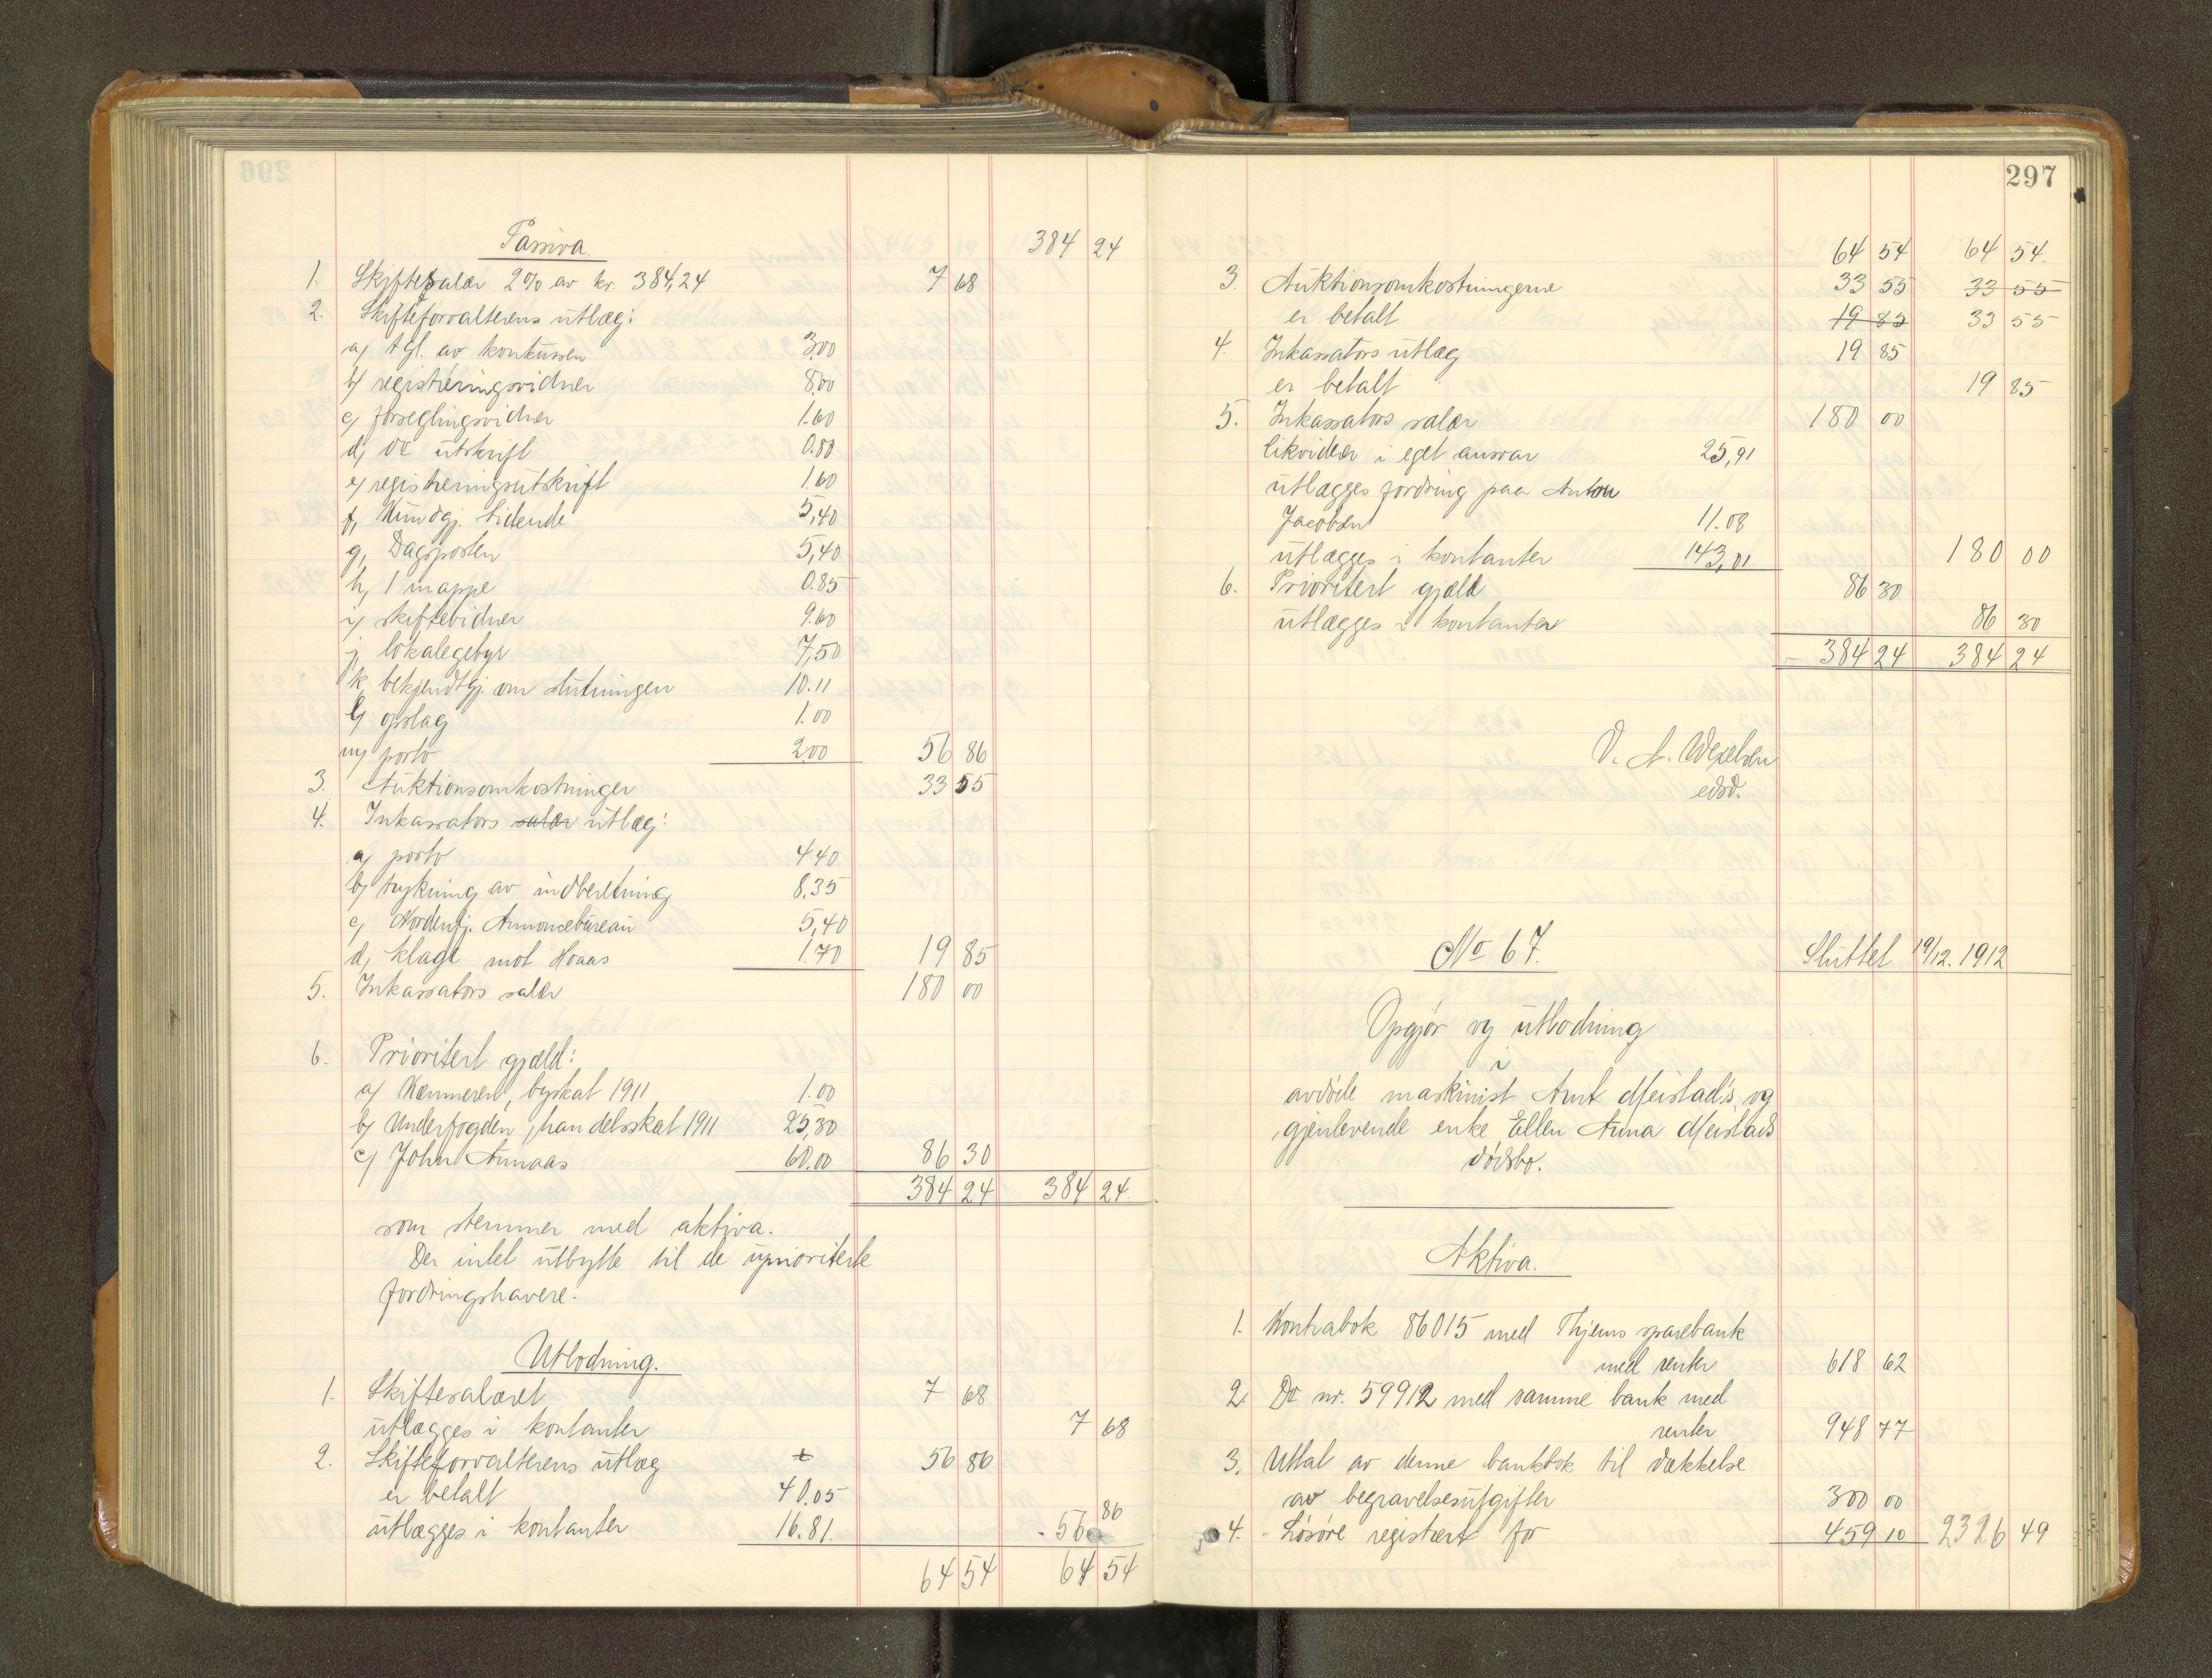 Passiva. 384 24
1. Skiftesalær 2% av kr. 384,24 7 68
2. Skifteforvalterens utlæg:
a) tgl. av konkursen 3,00
b) registreringsvidner 8,00
c) forseglingsvidner 1.60
d) do utskrift 0.80
e) registreringsutskrift 1.60
f) Kundgj. tidende 5,40
g) Dagsposten 5,40
h) 1 mappe 0.85
i) skiftevidner 9.60
j) lokalegebyr 7,50
k) bekjendtgj. om slutningen 10.11
l) opslag 1.00
m) porto 2.00 56 86
3. Auktionsomkostninger 33 55
4. Inkassators salær utlæg:
a) porto 4.40
b) trykning av indberetning 8.35
c) Nordenfj. Annoncebureau 5,40
d) klage mot Hoaas 1.70 19 85
5. Inkassators salær 180 00
6. Prioritert gjæld:
a) Kæmneren, byskat 1911 1.00
b) Underfogden, handelsskat 1911 25,30
c) John Aunaas 60.00 86 30
384 24 384 24
som stemmer med aktiva.
Der intet utbytte til de uprioriterte
fordringshavere.
Utlodning.
1. Skiftesalæret 7 68
utlægges i kontanter 7 68
2. Skifteforvalterens utlæg 56 86
er betalt 40.05
utlægges i kontanter 16.81. 56 86
64 54 64 54
297
64 54 64 54
3. Auktionsomkostningerne 33 55 33 55
er betalt 19 85 33 55
4. Inkassators utlæg 19 85
er betalt 19 85
5. Inkassators salær 180 00
likviderer i eget ansvar 25,91
utlægges fordring paa Anton
Jacobsen 11.08
utlægges i kontanter 143,01 180 00
6. Prioritert gjæld 86 30
utlægges i kontanter 86 30
384 24 384 24
V. A. Wexelsen
edsv.
No 67. Sluttet 19/12. 1912
Opgjør og utlodning
i
avdøde maskinist Arnt Meistad's og
gjenlevende enke Ellen Anna Meistads
dødsbo.
Aktiva.
1. Kontrabok 86015 med Thjems sparebank
med renter 618 62
2. Do nr. 59912 med samme bank med
renter 948 77
3. Uttat av denne bankbok til dækkelse
av begravelsesutgifter 300 00
4. Løsøre registrert for 459 10 2326 49